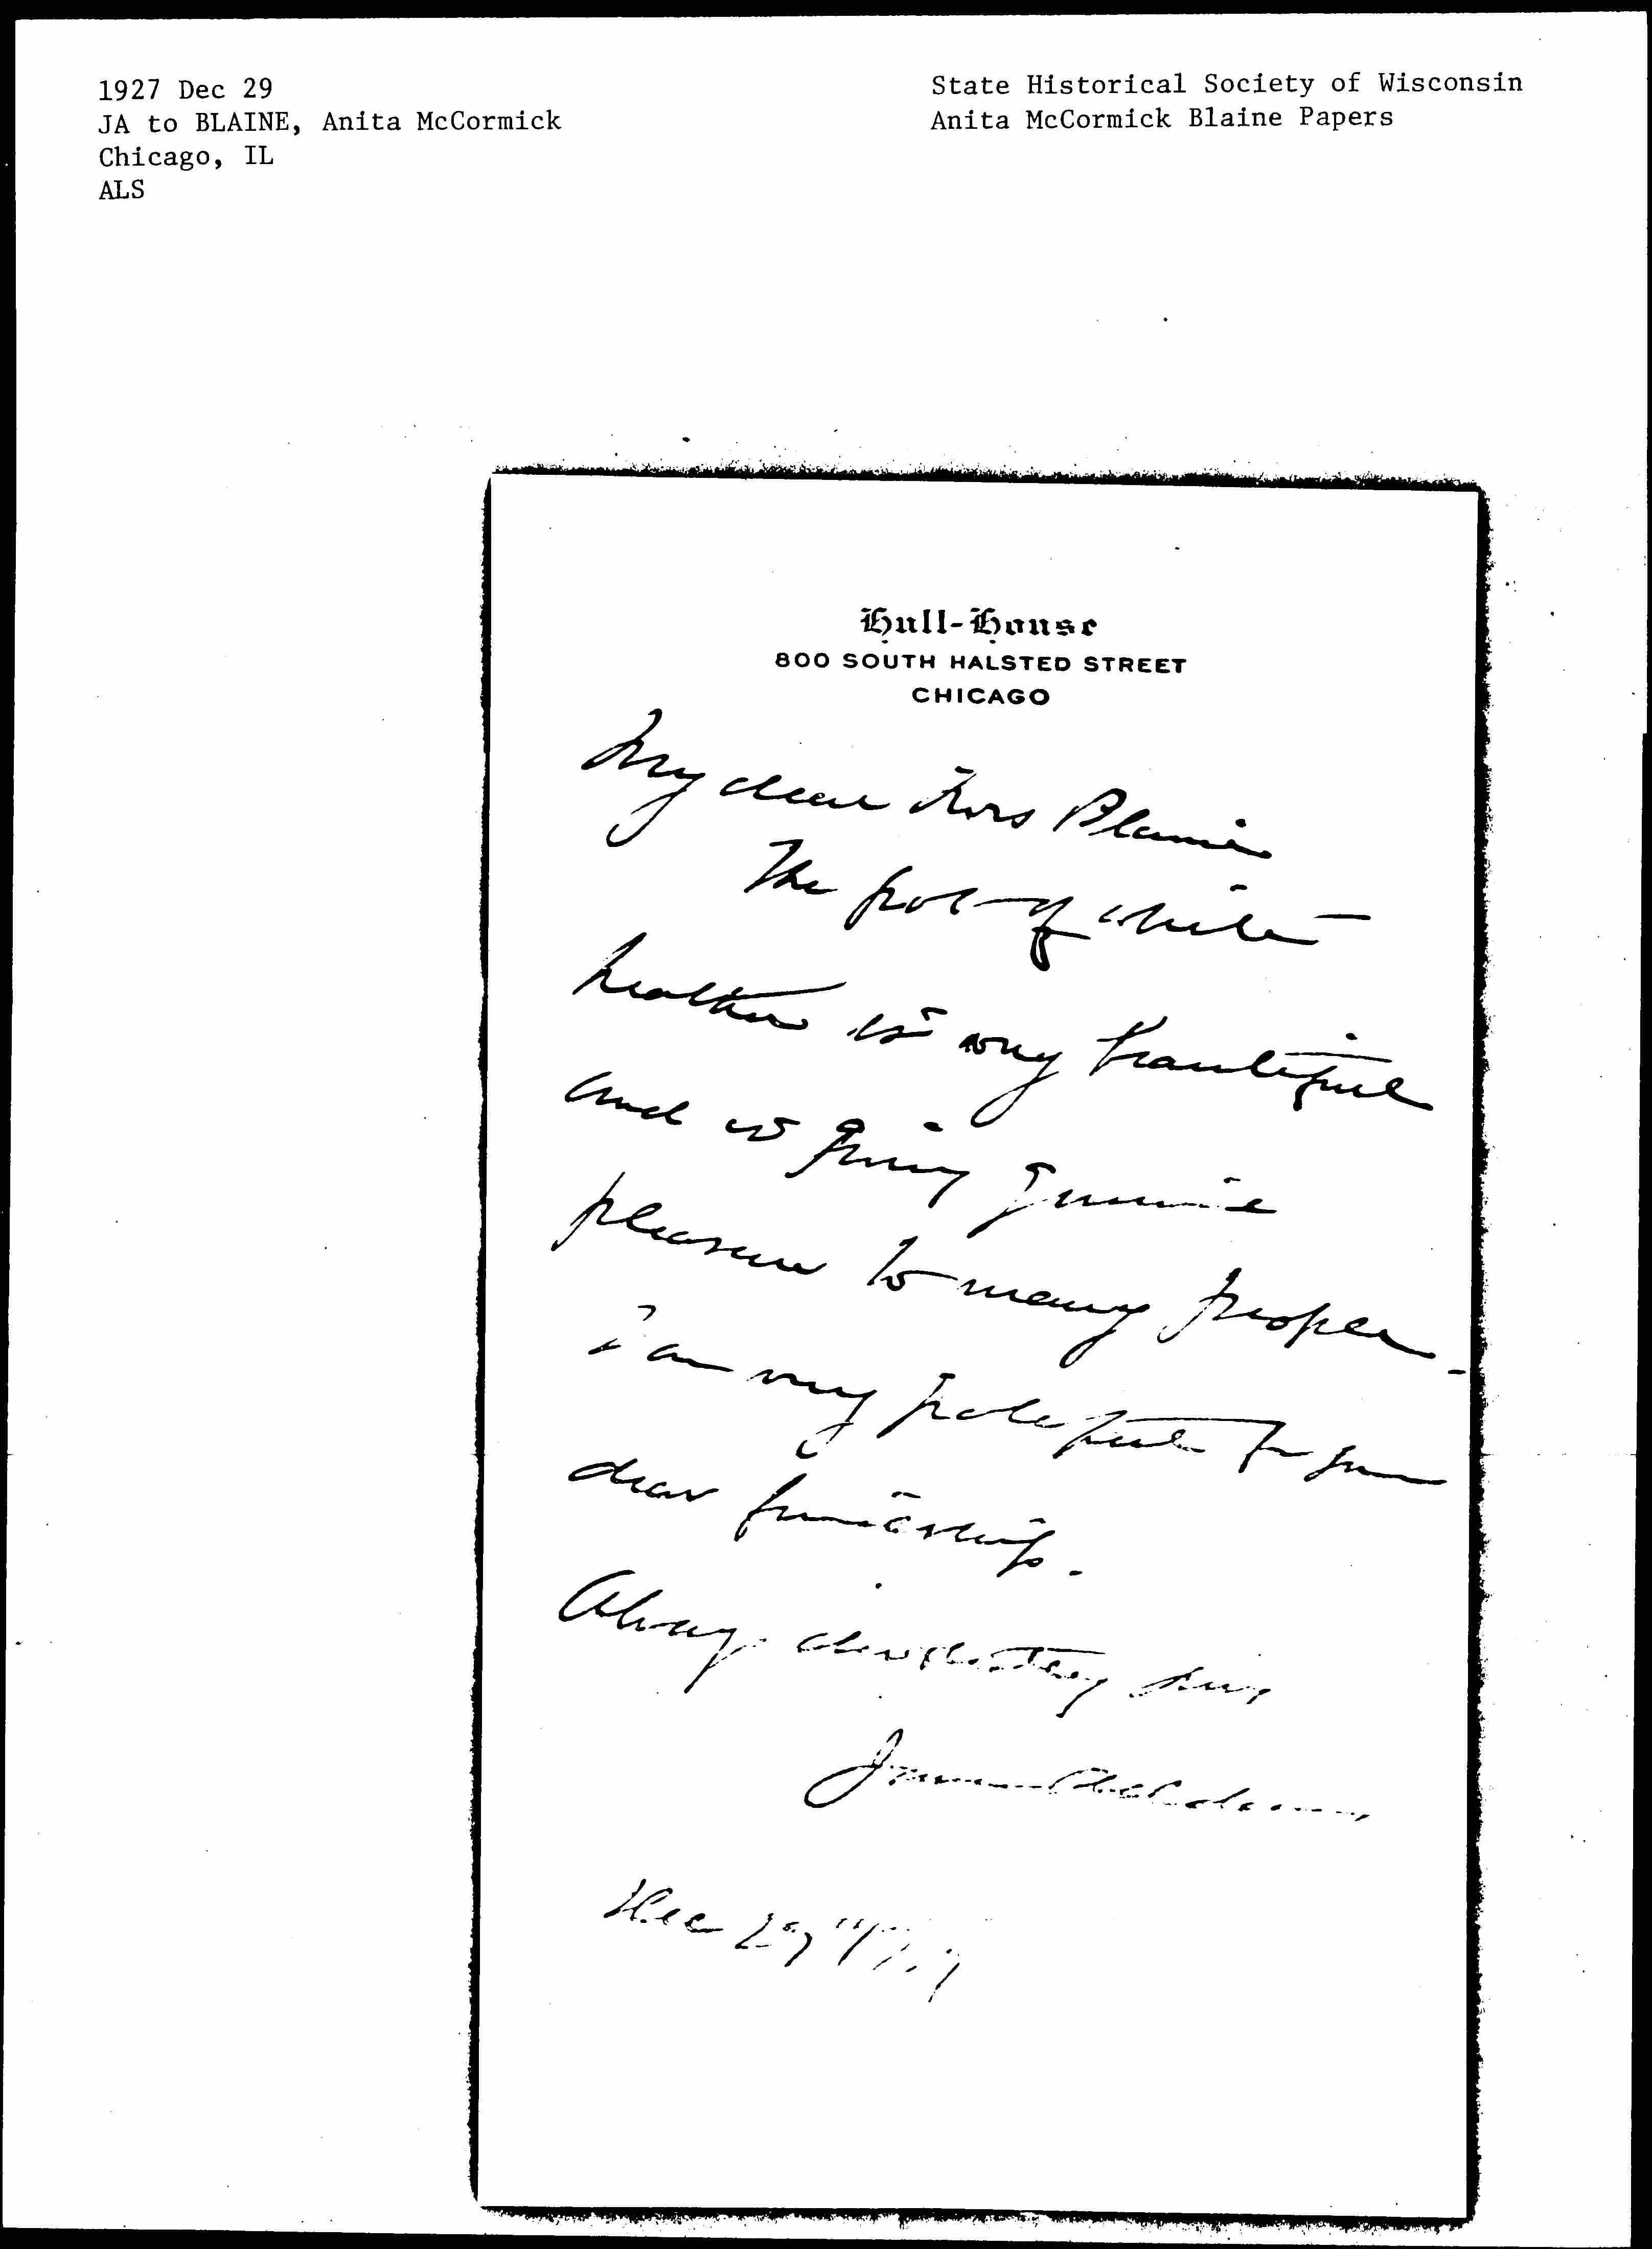 1927 Dec 29
JA to BLAINE, Anita McCormick
Chicago, IL
ALS
State Historical Society of Wisconsin
Anita McCormick Blaine Papers
Hull-House
800 SOUTH HALSTED STREET
CHICAGO
My dear Mrs Blaine
The pot of white
heather is very beautiful
and is giving genuine
pleasure to many people.
I am very grateful for your
dear friendship.
Always devotedly yours
Jane Addams
Dec 29" 1927